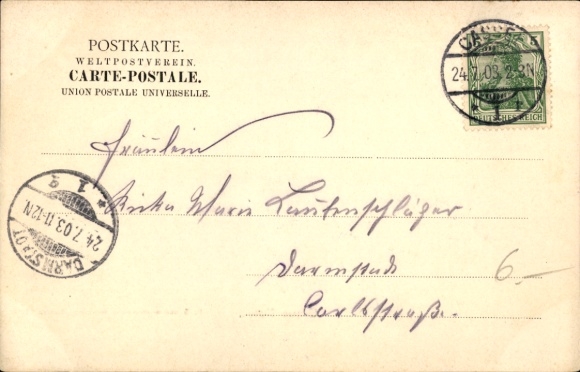 POSTKARTE.
WELTPOSTVEREIN.
CARTE-POSTALE.
UNION POSTALE UNIVERSELLE.
CASSEL
24.7.03. 2-3N
1
5
DEUTSCHES REICH
Fräulein
Marie Lautenschläger
Darmstadt
6.—
Carlsstraße.
DARMSTADT
24.7.03.11-12N.
* 1